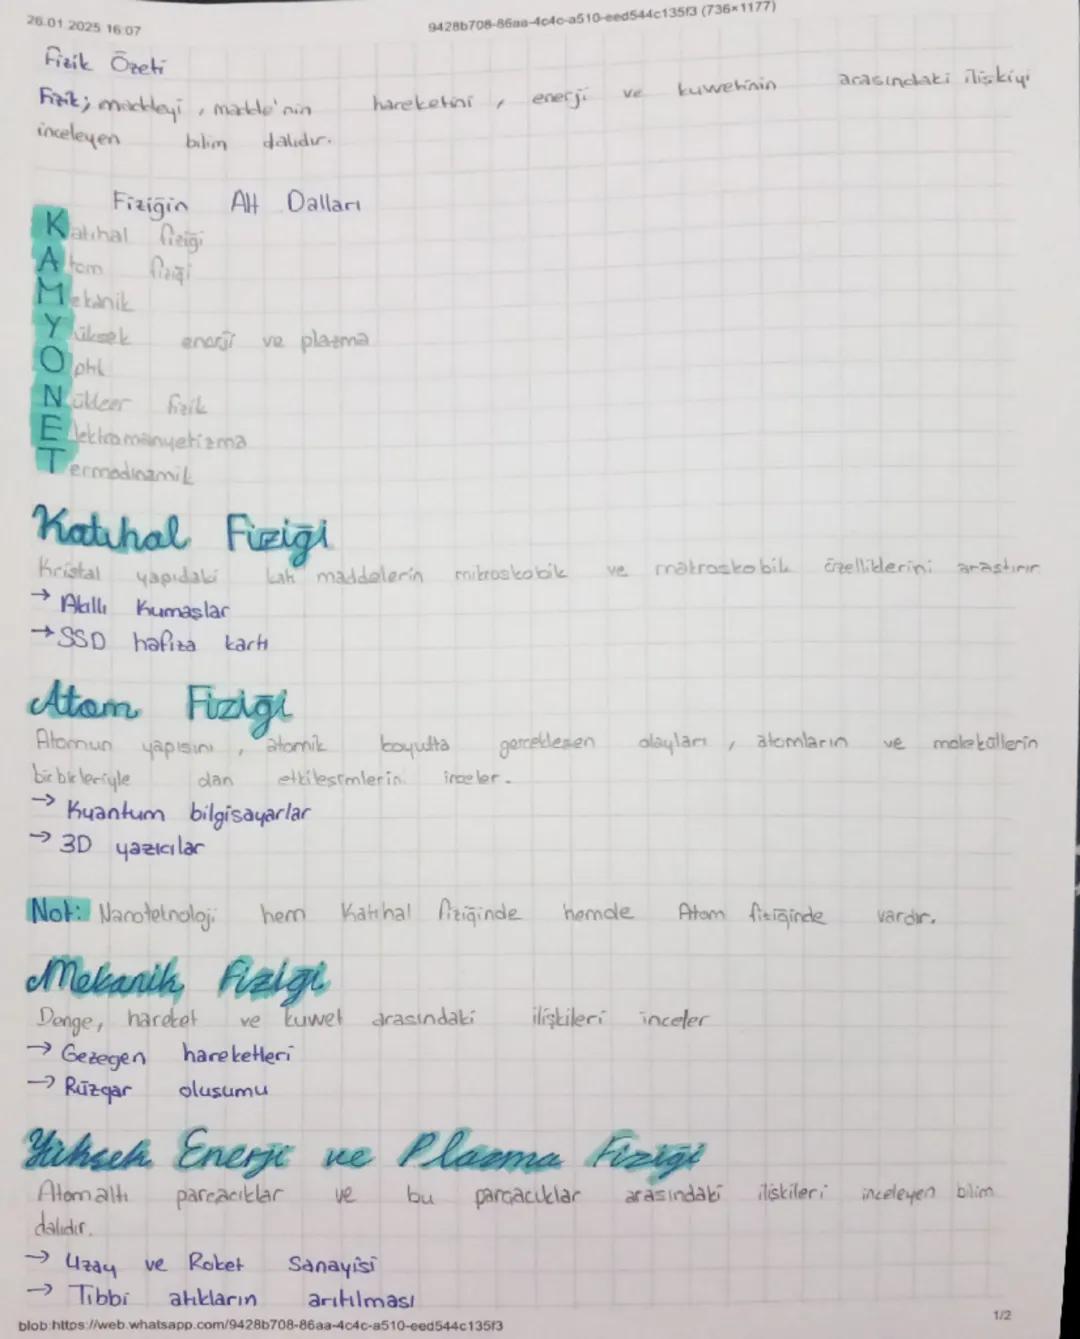 26.01.2025 16:07
9428b708-86aa-4c4c-a510-eed544c135f3 (736×1177)
Fizik Özeti
Fizik; maddeyi, madde'nin hareketini, enerji ve kuvvetinin arasındaki ilişkiyi
inceleyen bilim dalıdır.
Fiziğin Alt Dalları
Katıhal fiziği
Atom fiziği
Mekanik
Yüksek enerji ve plazma
Optik
Nükleer fizik
Elektromanyetizma
Termodinamik
Katıhal Fiziği
Kristal yapıdaki katı maddelerin mikroskobik ve makroskobik özelliklerini araştırır
→ Akıllı Kumaşlar
→ SSD hafıza kartı
Atom Fiziği
Atomun yapısını, atomik boyutta gerçekleşen olayları, atomların ve moleküllerin
birbirleriyle olan etkileşimlerin inceler.
→ Kuantum bilgisayarlar
→ 3D yazıcılar
Not: Nanoteknoloji hem Katıhal fiziğinde hemde Atom fiziğinde vardır.
Mekanik Fiziği
Denge, hareket ve kuvvet arasındaki ilişkileri inceler
→ Gezegen hareketleri
→ Rüzgar oluşumu
Yüksek Enerji ve Plazma Fiziği
Atomaltı parçacıklar ve bu parçacıklar arasındaki ilişkileri inceleyen bilim
dalıdır.
→ Uzay ve Roket Sanayisi
→ Tıbbi atıkların arıtılması
blob:https://web.whatsapp.com/9428b708-86aa-4c4c-a510-eed544c135f3
1/2